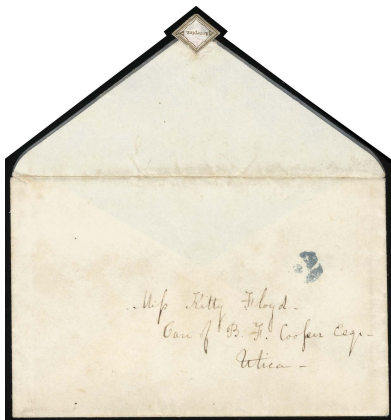 Miss Kitty Floyd -
Care of B. F. Cooper Esqr -
Utica -